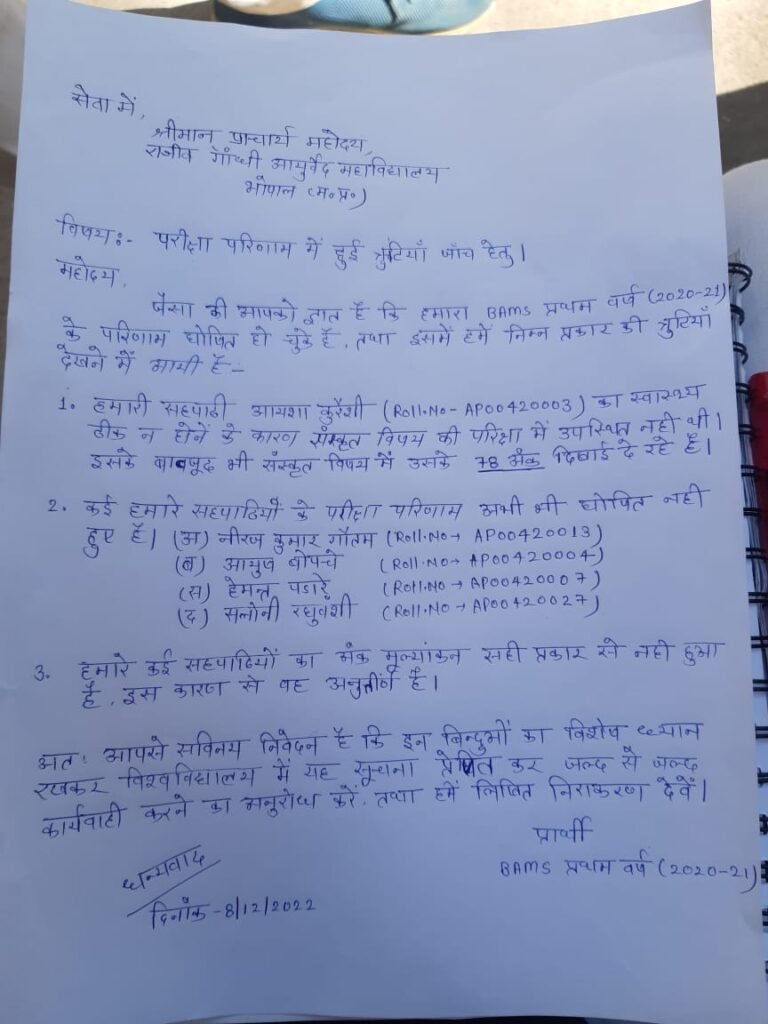 सेवा में,
श्रीमान प्राचार्य महोदय,
राजीव गाँधी आयुर्वेद महाविद्यालय
भोपाल (म.प्र.)
विषय:- परीक्षा परिणाम में हुई त्रुटियाँ जाँच हेतु।
महोदय,
जैसा की आपको ज्ञात है कि हमारा BAMS प्रथम वर्ष (2020-21)
के परिणाम घोषित हो चुके है, तथा इसमें हमें निम्न प्रकार की त्रुटियाँ
देखने में आयी है:-
1. हमारी सहपाठी आयशा कुरैशी (Roll.No- AP00420003) का स्वास्थ्य
ठीक न होनें के कारण संस्कृत विषय की परिक्षा में उपस्थित नही थी।
इसके बावजूद भी संस्कृत विषय में उसके 78 अंक दिखाई दे रहे है।
2. कई हमारे सहपाठियों के परीक्षा परिणाम अभी भी घोषित नही
हुए है। (अ) नीरज कुमार गौतम (Roll.No→ AP00420013)
(ब) आयुष बोपचे (Roll.No→ AP00420004)
(स) हेमन्त पडारे (Roll.No→ AP00420007)
(द) सलोनी रघुवंशी (Roll.No→ AP00420027)
3. हमारे कई सहपाठियों का अंक मूल्यांकन सही प्रकार से नही हुआ
है, इस कारण से वह अनुत्तीर्ण है।
अतः आपसे सविनय निवेदन है कि इन बिन्दुओं का विशेष ध्यान
रखकर विश्वविद्यालय में यह सूचना प्रेषित कर जल्द से जल्द
कार्यवाही करने का अनुरोध करें, तथा हमें लिखित निराकरण देवें।
प्रार्थी
BAMS प्रथम वर्ष (2020-21)
धन्यवाद
दिनाँक-8/12/2022